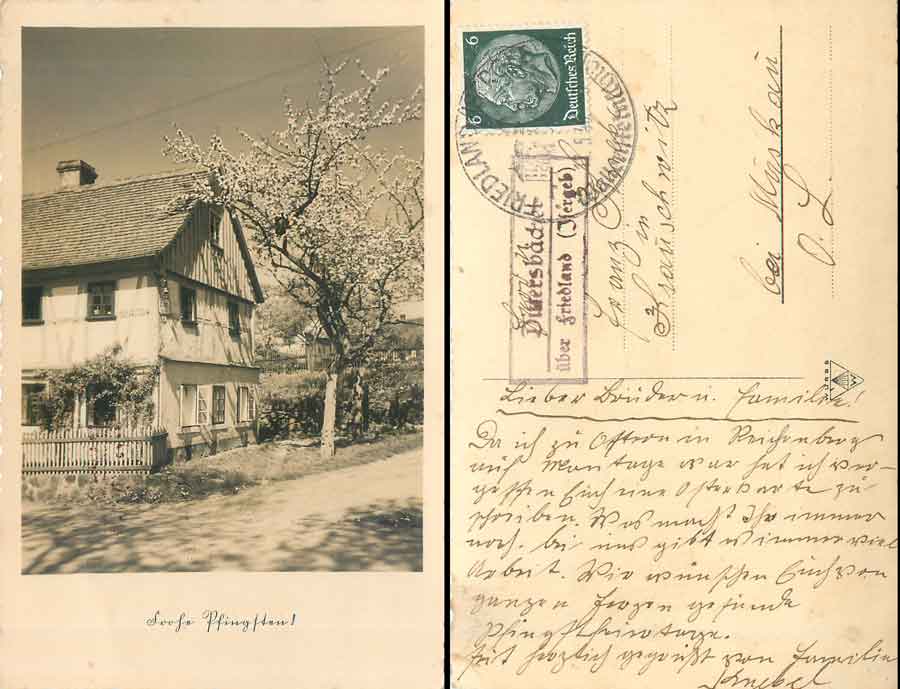 Frohe Pfingsten!
6
6
Deutsches Reich
FRIEDLAND
über Friedland (Isergeb.)
Franz
in
bei Muskau
O. L.
Lieber Brüder u. Familie!
Da ich zu Ostern in Reichenberg
auf Montage war hat ich ver-
geßen Euch eine Osterkarte zu
schreiben. Was macht Ihr immer
noch. bei uns gibt es immer viel
Arbeit. Wir wünschen Euch von
ganzen Herzen gesunde
Pfingstfeiertage.
Seit herzlich gegrüßt von Familie
Knebel